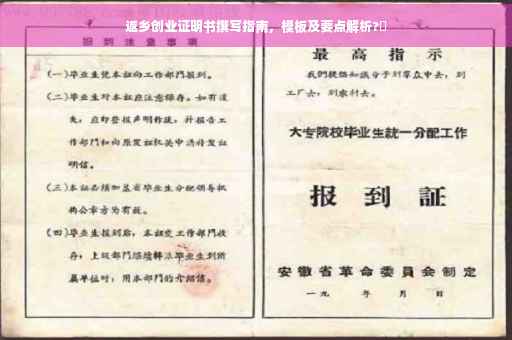 返乡创业证明书撰写指南，模板及要点解析?
报到注意事项
(一)毕业生凭本证向工作部门报到。
(二)毕业生对本证应注意保存。如有遗
失，应即登报声明作废，并报告工
作部门和向原发证机关申请补发证
明信。
(三)本证必须加盖省毕业生分配领导机
构公章方为有效。
(四)毕业生报到后，本证交工作部门收
存；上级部门
毕业生到所
属单位时，用本部门的介绍信。
最高指示
我们提倡知识分子到群众中去，到
工厂去，到农村去。
大专院校毕业生統一分配工作
报到証
安徽省革命委員会制定
一九 年 月 日